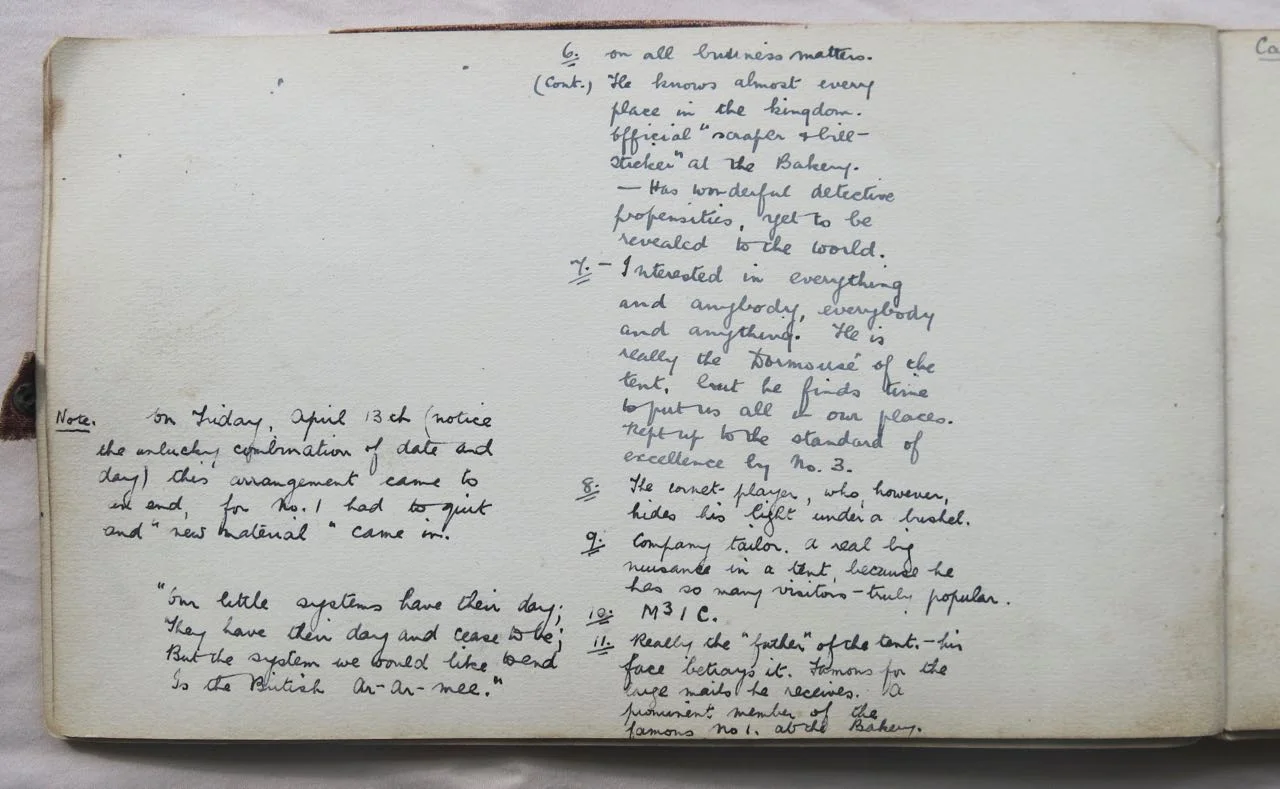 Note. On Friday, April 13th (notice
the unlucky combination of date and
day) this arrangement came to
an end, for No. 1 had to quit
and "new material" came in.
"Our little systems have their day;
They have their day and cease to be;
But the system we would like to end
Is the British Ar-Ar-mee."
6. on all business matters.
(Cont.) He knows almost every
place in the kingdom.
Official "scraper & bill-
sticker" at the Bakery.
— Has wonderful detective
propensities, yet to be
revealed to the world.
7. – Interested in everything
and anybody, everybody
and anything. He is
really the 'Dormouse' of the
tent, but he finds time
to put us all in our places.
Kept up to the standard of
excellence by No. 3.
8. The cornet-player, who, however,
hides his 'light' under a bushel.
9. Company tailor. A real big
nuisance in a tent, because he
has so many visitors – truly popular.
10. M31C.
11. Really the "father" of the tent. – his
face betrays it. Famous for the
large mails he receives. A
prominent member of the
famous No 1. at the Bakery.
Ca